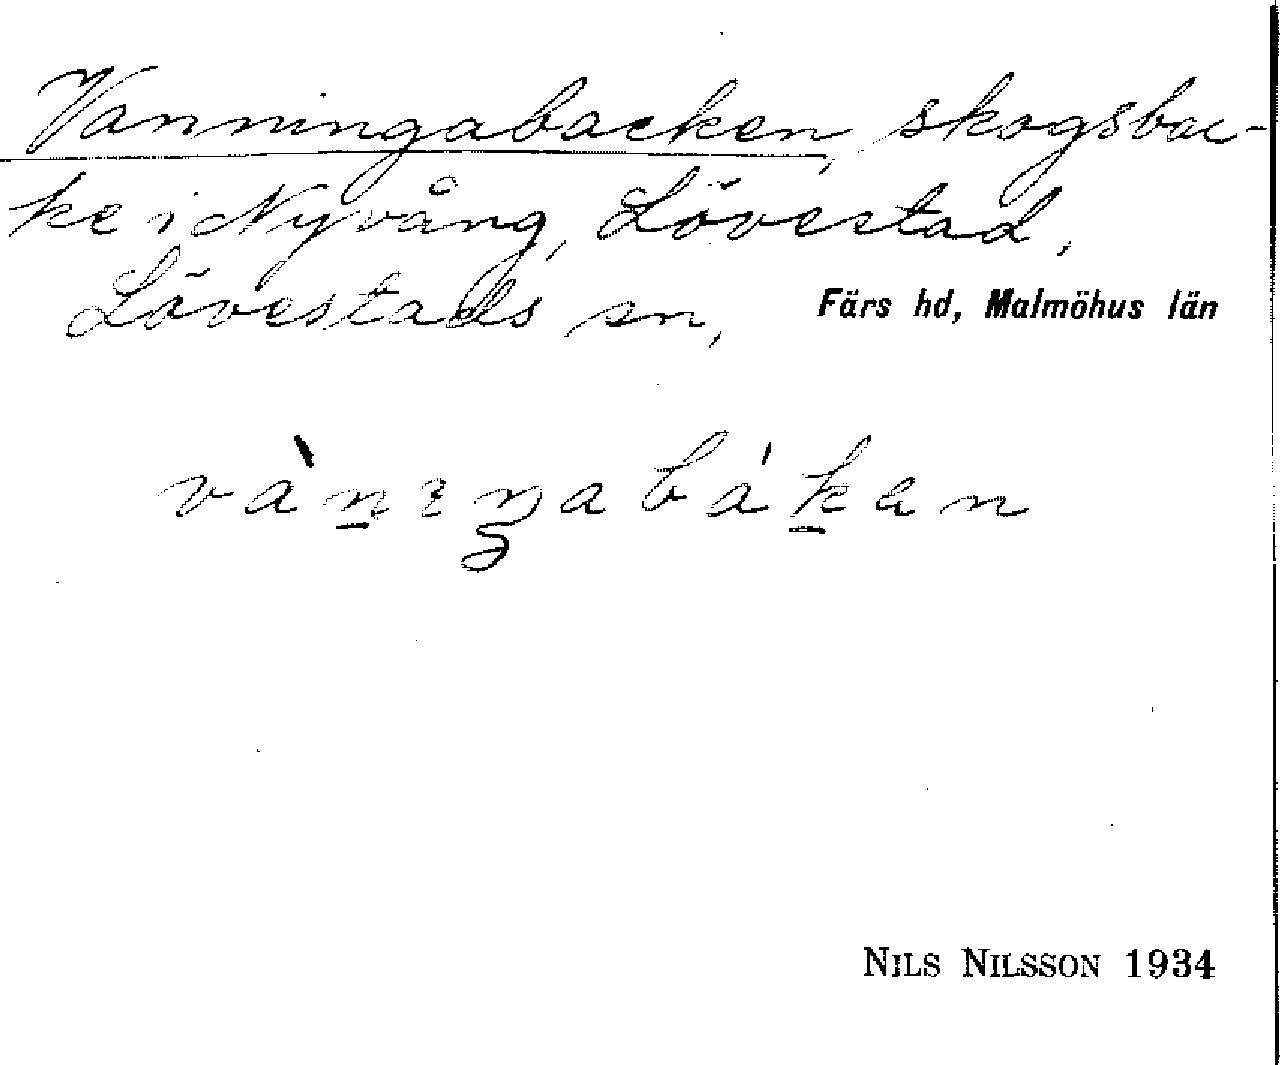 Vanningabacken, skogsbac-
ke i Nyvång, Lövestad,
Lövestads sn, Färs hd, Malmöhus län
vàn̠ıŋabák̠an
NILS NILSSON 1934